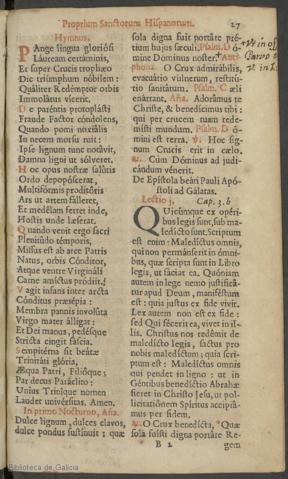 Proprium Sanctorum Hispanorum. 27
Hymnus.
PAnge lingua gloriósi
Láuream certáminis,
Et super Crucis trophæo
Dic triúmphum nóbilem :
Quáliter Redémptor orbis
Immolátus vícerit.
De parentis protoplásti
Fraude Factor cóndolens,
Quando pomi noxiális
In necem morsu ruit :
Ipse lignum tunc notávit,
Damna ligni ut sólveret.
Hoc opus nostræ salútis
Ordo depopóscerat,
Multifórmis proditóris
Ars ut artem fálleret,
Et medélam ferret inde,
Hostis unde læserat.
Quando venit ergo sacri
Plenitúdo témporis,
Missus est ab arce Patris
Natus, orbis Cónditor,
Atque ventre Virgináli
Carne amíctus pródiit.
Vagit infans inter arcta
Cónditus præsépia :
Membra pannis involúta
Virgo mater álligat :
Et Dei manus, pedésque
Stricta cingit fáscia.
Sempitérna sit beátæ
Trinitáti glória,
Æqua Patri, Filióque ;
Par decus Paráclito :
Uníus Triníque nomen
Laudet univérsitas. Amen.
In primo Nocturno, Aña.
Dulce lignum, dulces clavos,
dulce pondus sustínuit : quæ
sola digna fuit portáre pré-
tium hujus sæculi. Psalm. Dó-
mine Dóminus noster. Anti-
phona. O Crux admirábilis,
evacuátio vúlnerum, restitú-
tio sanitátum. Psalm. Cæli
enárrant. Aña. Adorámus te
Christe, & benedícimus tibi ;
qui per crucem tuam rede-
místi mundum. Psalm. Dó-
mini est terra. ℣. Hoc sig-
num Crucis erit in cælo.
℟. Cum Dóminus ad judi-
cándum vénerit.
De Epístola beáti Pauli Apó-
stoli ad Gálatas.
Lectio j. Cap. 3. b
QUicúmque ex opéri-
bus legis sunt, sub ma-
ledícto sunt. Scriptum
est enim : Maledíctus omnis,
qui non permánserit in ómni-
bus, quæ scripta sunt in Libro
legis, ut fáciat ea. Quóniam
autem in lege nemo justificá-
tur apud Deum, maniféstum
est : quia justus ex fide vivit.
Lex autem non est ex fide :
sed Qui fécerit ea, vivet in il-
lis. Christus nos redémit de
maledícto legis, factus pro
nobis maledíctum ; quia scri-
ptum est : Maledíctus omnis
qui pendet in ligno : ut in
Géntibus benedíctio Abrahæ
fíeret in Christo Jesu, ut pol-
licitatiónem Spíritus accipiá-
mus per fidem.
℟. O Crux benedícta, * Quæ
sola fuísti digna portáre Re-
B 2 gem
Biblioteca de Galicia